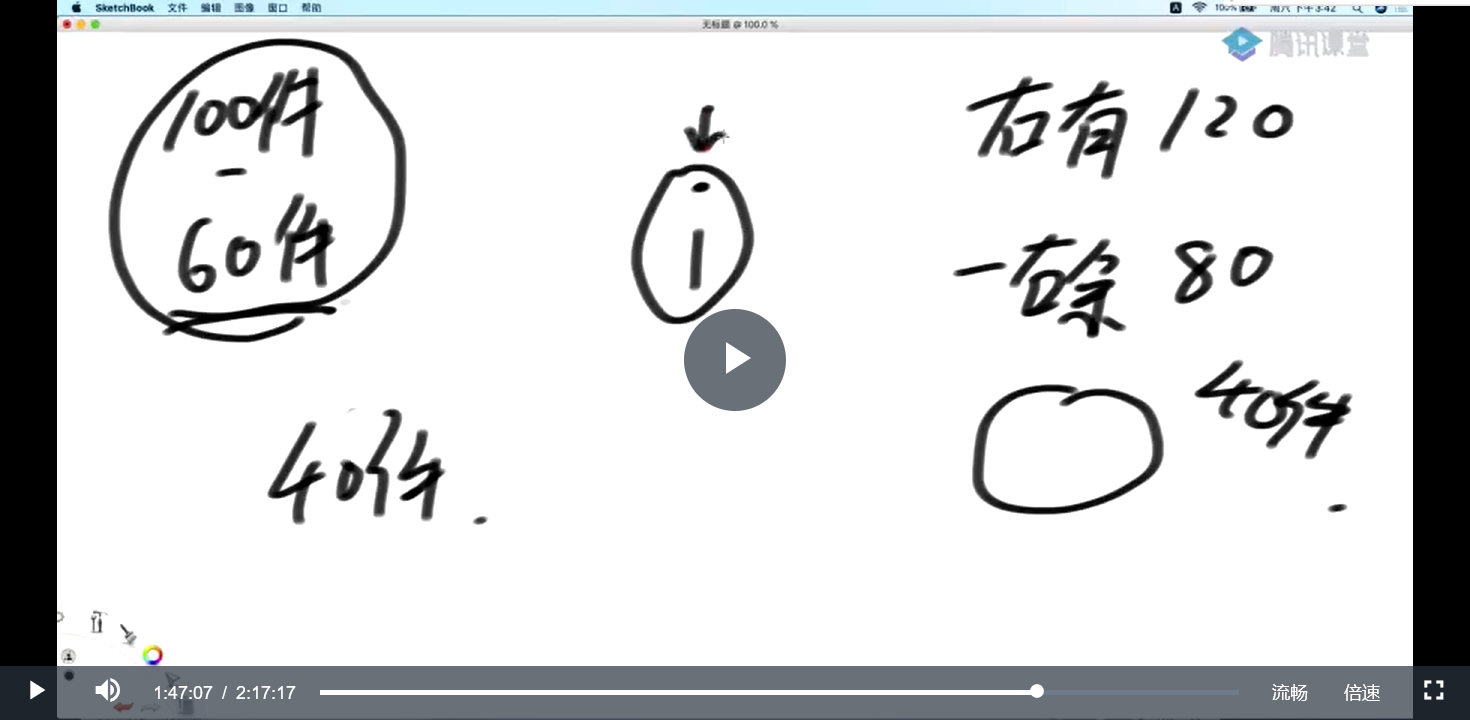 SketchBook 文件 编辑 图像 窗口 帮助
100% 周六 下午3:42
无标题 @ 100.0 %
腾讯课堂
100件
-
60件
40件.
1
右有 120
一右除 80
40件
.
1:47:07 / 2:17:17
流畅 倍速